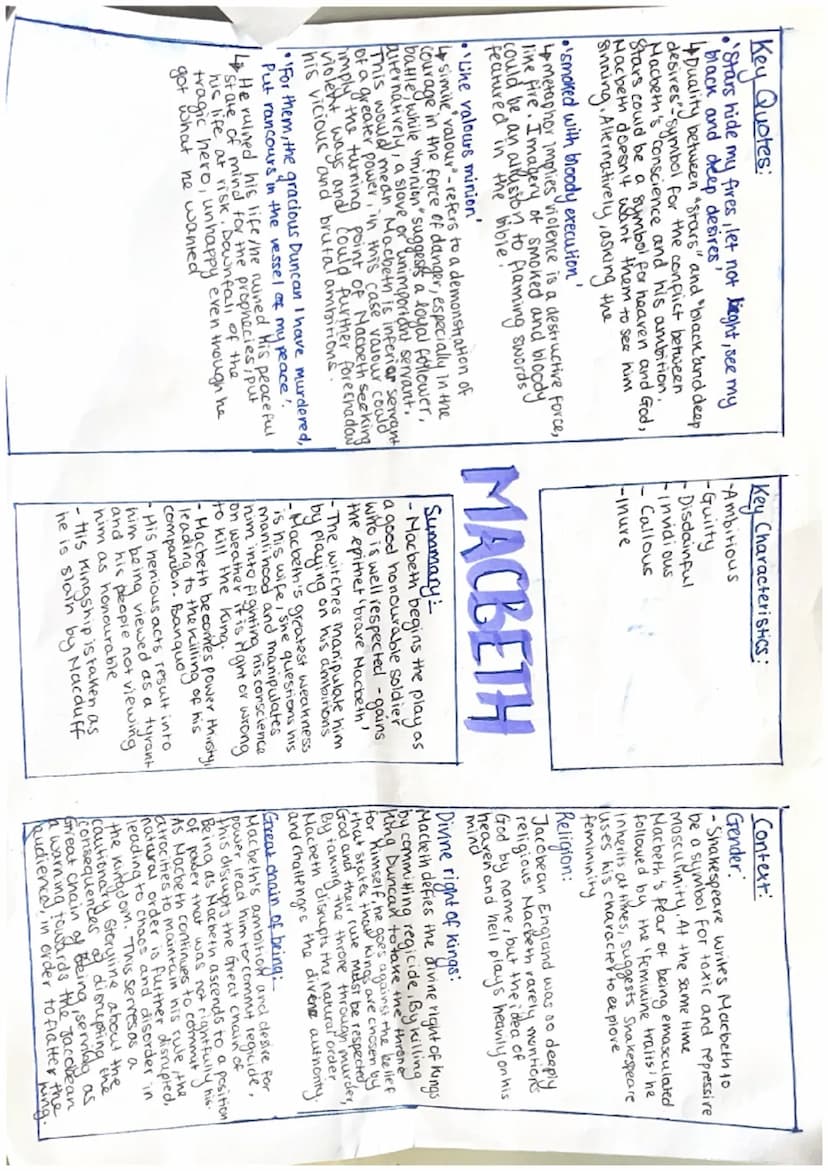 Key Quotes:
• 'Stars hide my fires, let not light, see my
black and deep desires'
↳ Duality between "stars" and "black and deep
desires" - symbol for the conflict between
Macbeth's conscience and his ambition.
Stars could be a symbol for heaven and God,
Macbeth doesn't want them to see him
sinning, Alternatively, asking the
• 'smoked with bloody execution'
↳ metaphor implies violence is a destructive force,
like fire. Imagery of smoked and bloody
could be an allusion to flaming swords
featured in the bible.
• 'Like valours minion'
↳ simile "valour" - refers to a demonstration of
courage in the force of danger, especially in the
battle, while "minion" suggests a loyal follower,
alternatively, a slave or unimportant servant.
This would mean Macbeth is inferior servant
of a greater power, in this case valour could
imply the turning point of Macbeth seeking
violent ways and could further foreshadow
his vicious and brutal ambitions.
• 'For them, the gracious Duncan I have murdered,
Put rancours in the vessel of my peace'.
↳ He ruined his life/he ruined his peaceful
state of mind for the prophecies, put
his life at risk. Downfall of the
tragic hero, unhappy even though he
got what he wanted
Key Characteristics:
- Ambitious
- Guilty
- Disdainful
- Invidious
- Callous
- Inure
MACBETH
Summary:
- Macbeth begins the play as
a good honourable soldier
who is well respected - gains
the epithet 'brave Macbeth'
- The witches manipulate him
by playing on his ambitions
- Macbeth's greatest weakness
is his wife, she questions his
manlihood and manipulates
him into fighting his conscience
on weather it is right or wrong
to kill the king.
- Macbeth becomes power thirsty,
leading to the killing of his
companion - Banquo
- His henious acts result into
him being viewed as a tyrant
and his people not viewing
him as honourable
- His Kingship is taken as
he is slain by Macduff
Context:
Gender:
- Shakespeare writes Macbeth to
be a symbol for toxic and repressive
masculinity. At the same time
Macbeth's fear of being emasculated
followed by the 'feminine traits' he
inherits at times, suggests Shakespeare
uses his character to explore
femininity
Religion:
Jacobean England was so deeply
religious. Macbeth rarely mentions
God by name, but the idea of
heaven and hell plays heavily on his
mind
Divine right of Kings:
Macbeth defies the divine right of kings
by committing regicide. By killing
King Duncan to take the throne
for himself, he goes against the belief
that states that kings are chosen by
God and their rule must be respected
By taking the throne through murder,
Macbeth disrupts the natural order
and challenges the divine authority.
Great chain of being:
Macbeth's ambition and desire for
power lead him to commit regicide,
this disrupts the Great Chain of
Being as Macbeth ascends to a position
of power that was not rightfully his.
As Macbeth continues to commit
atrocities to maintain his rule, the
natural order is further disrupted,
leading to chaos and disorder in
the kingdom. This serves as a
cautionary storyline about the
consequences of disrupting the
Great Chain of Being, serving as
a warning towards the Jacobean
audience, in order to flatter the
King.